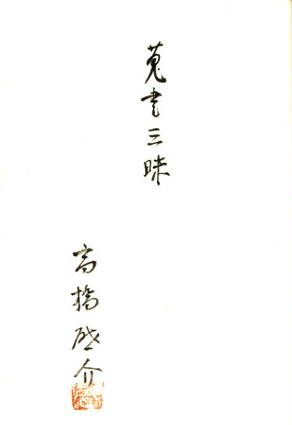 蒐書三昧
高橋啓介